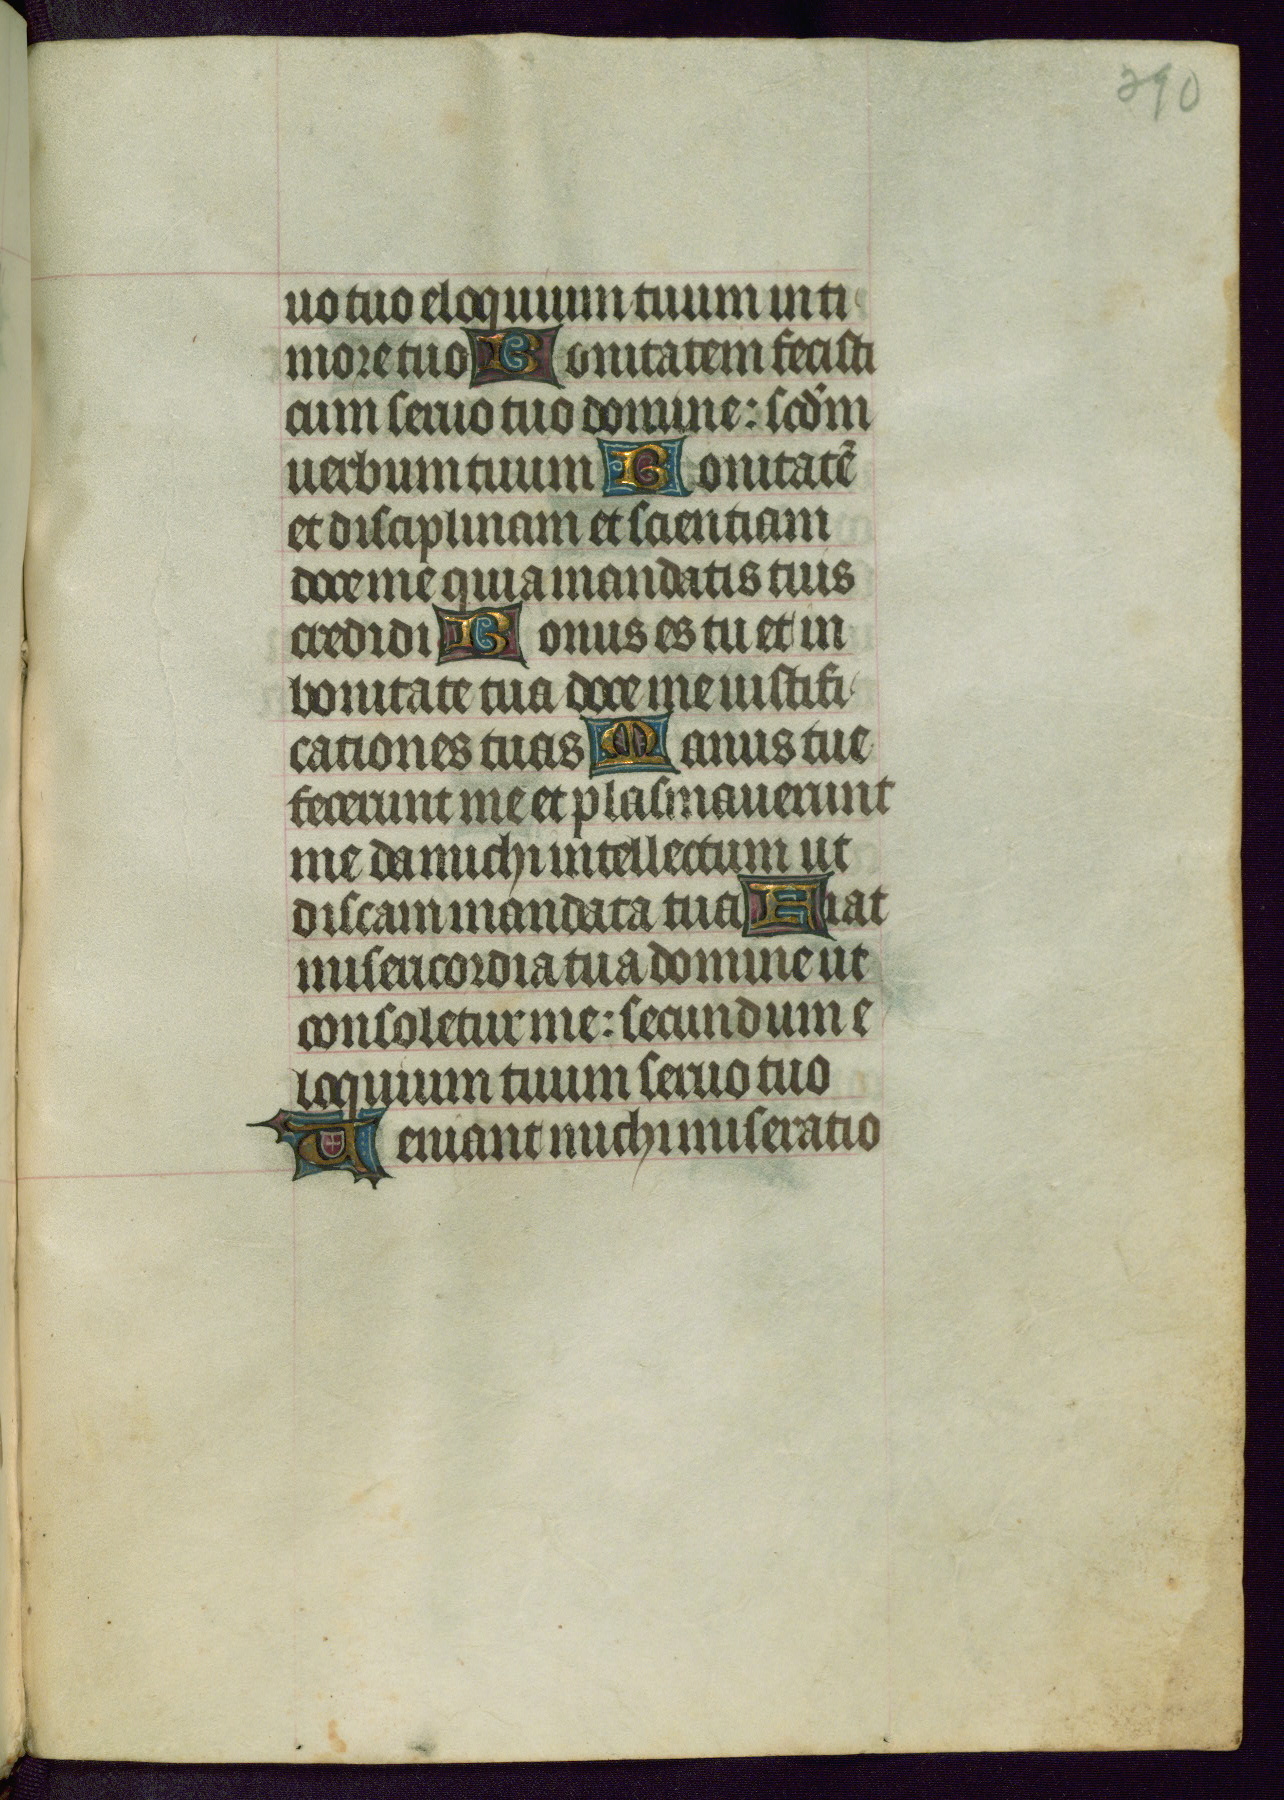 290
uo tuo eloquium tuum in ti
more tuo Bonitatem fecisti
cum seruo tuo domine: scd̄m
uerbum tuum Bonitatē
et disciplinam et scientiam
doce me quia mandatis tuis
credidi Bonus es tu et in
bonitate tua doce me iustifi
cationes tuas Manus tue
fecerunt me et plasmauerunt
me da michi intellectum ut
discam mandata tua Fiat
misericordia tua domine ut
consoletur me: secundum e
loquium tuum seruo tuo
Ueniant michi miseratio